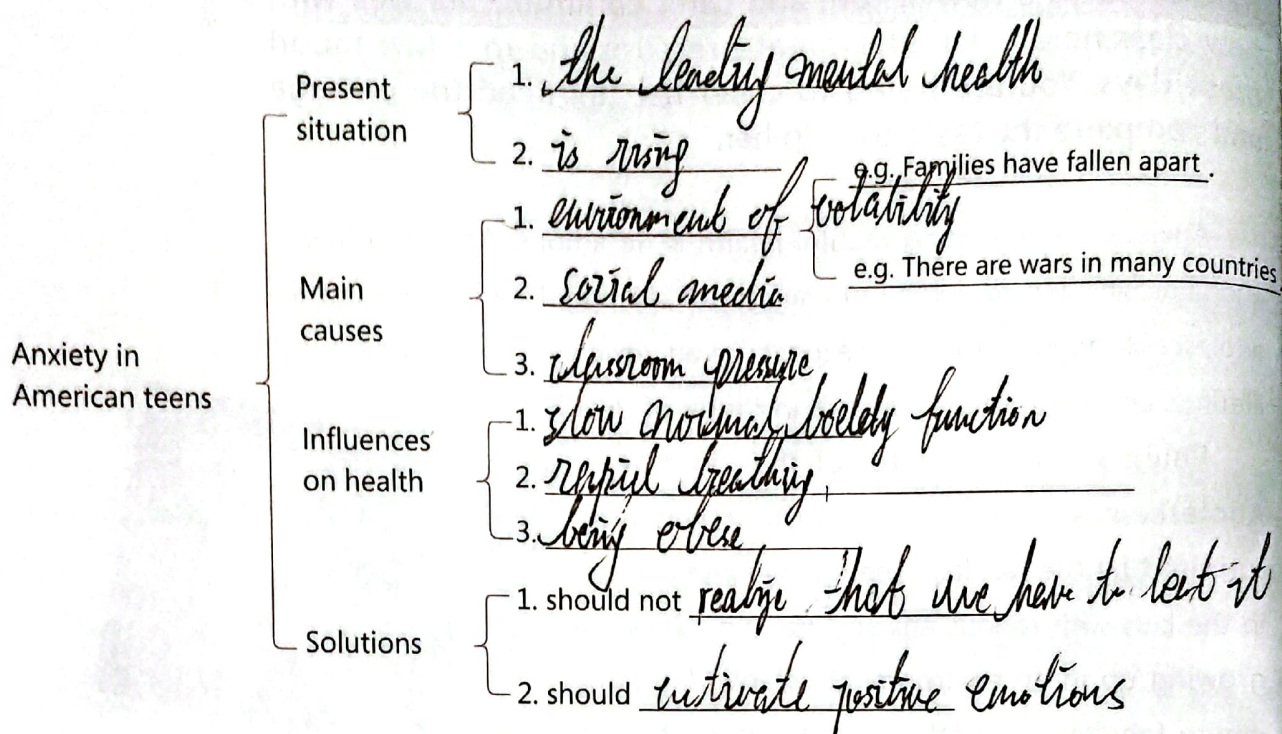 Anxiety in
American teens
Present
situation
1. the leading mental health
2. is rising
Main
causes
1. environment of volatility
e.g. Families have fallen apart.
e.g. There are wars in many countries
2. social media
3. classroom pressure
Influences
on health
1. slow normal function
2. breathing
3. being obese
Solutions
1. should not realize that we have to it
2. should cutivate positive emotions